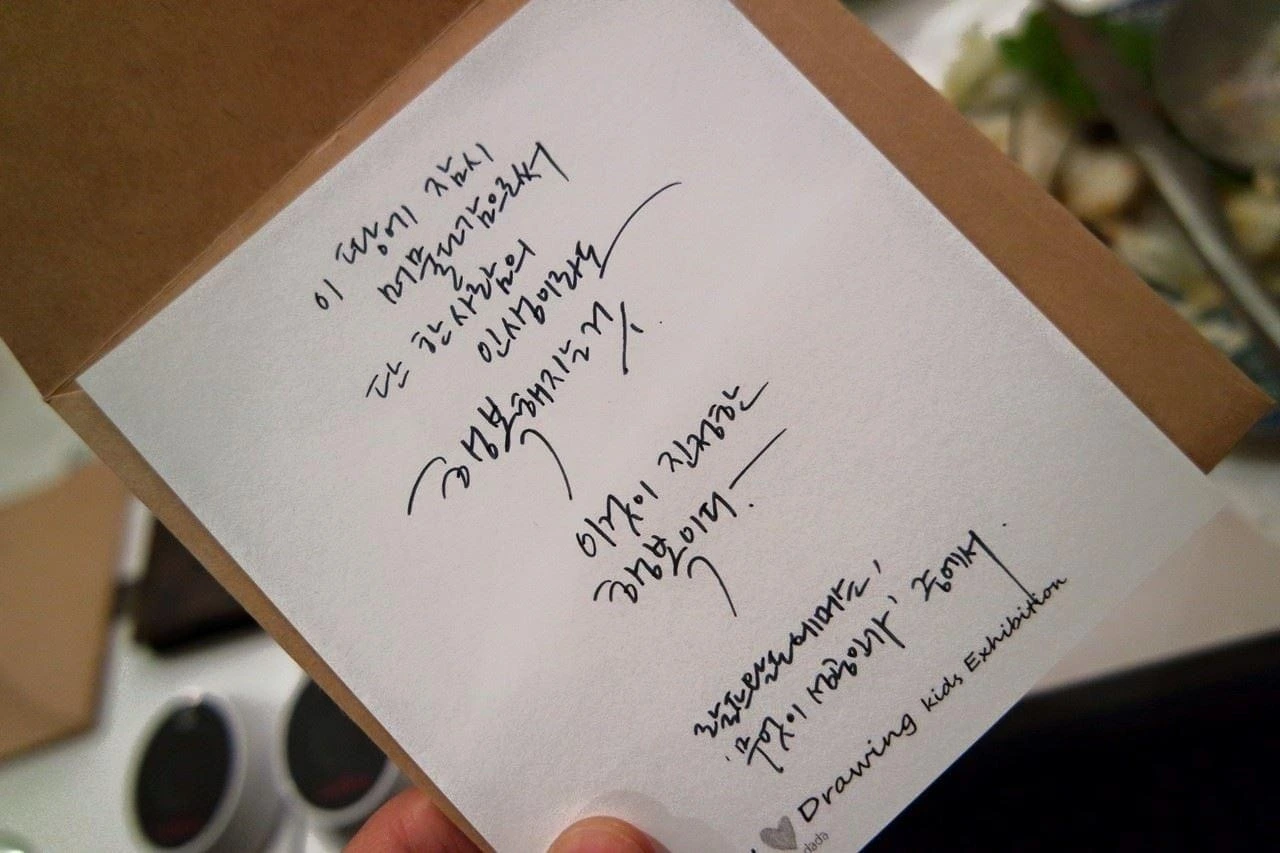 이 땅에 잠시
머물다감으로써
단 한사람의
인생이라도
행복해지는 것.
이것이 진정한
행복이다.
랄프왈도에머슨,
'무엇이 성공인가' 중에서.
Drawing kids Exhibition
dada